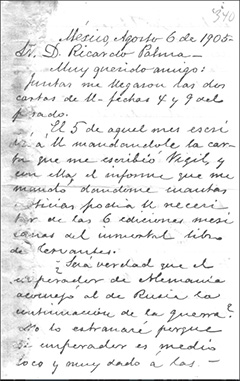 340
México, Agosto 6 de 1905-
Sr. D. Ricardo Palma-
Muy querido amigo:
Juntas me llegaron las dos
cartas de U. fechas 4 y 9 del
pasado.
El 5 de aquel mes escri
bí á U mandandole la car
ta que me escribió Vigil, y
con ella, el informe que me
mandó dandome cuantas
noticias podia U neceri
tar de las 6 ediciones mexi
canas del inmortal libro
de Cervantes.
¿Será verdad que el
emperador de Alemania
aconsejo al de Rusia la
continuacion de la guerra?
No lo estrañaré porque
ese emperador es medio
loco y muy dado á las-